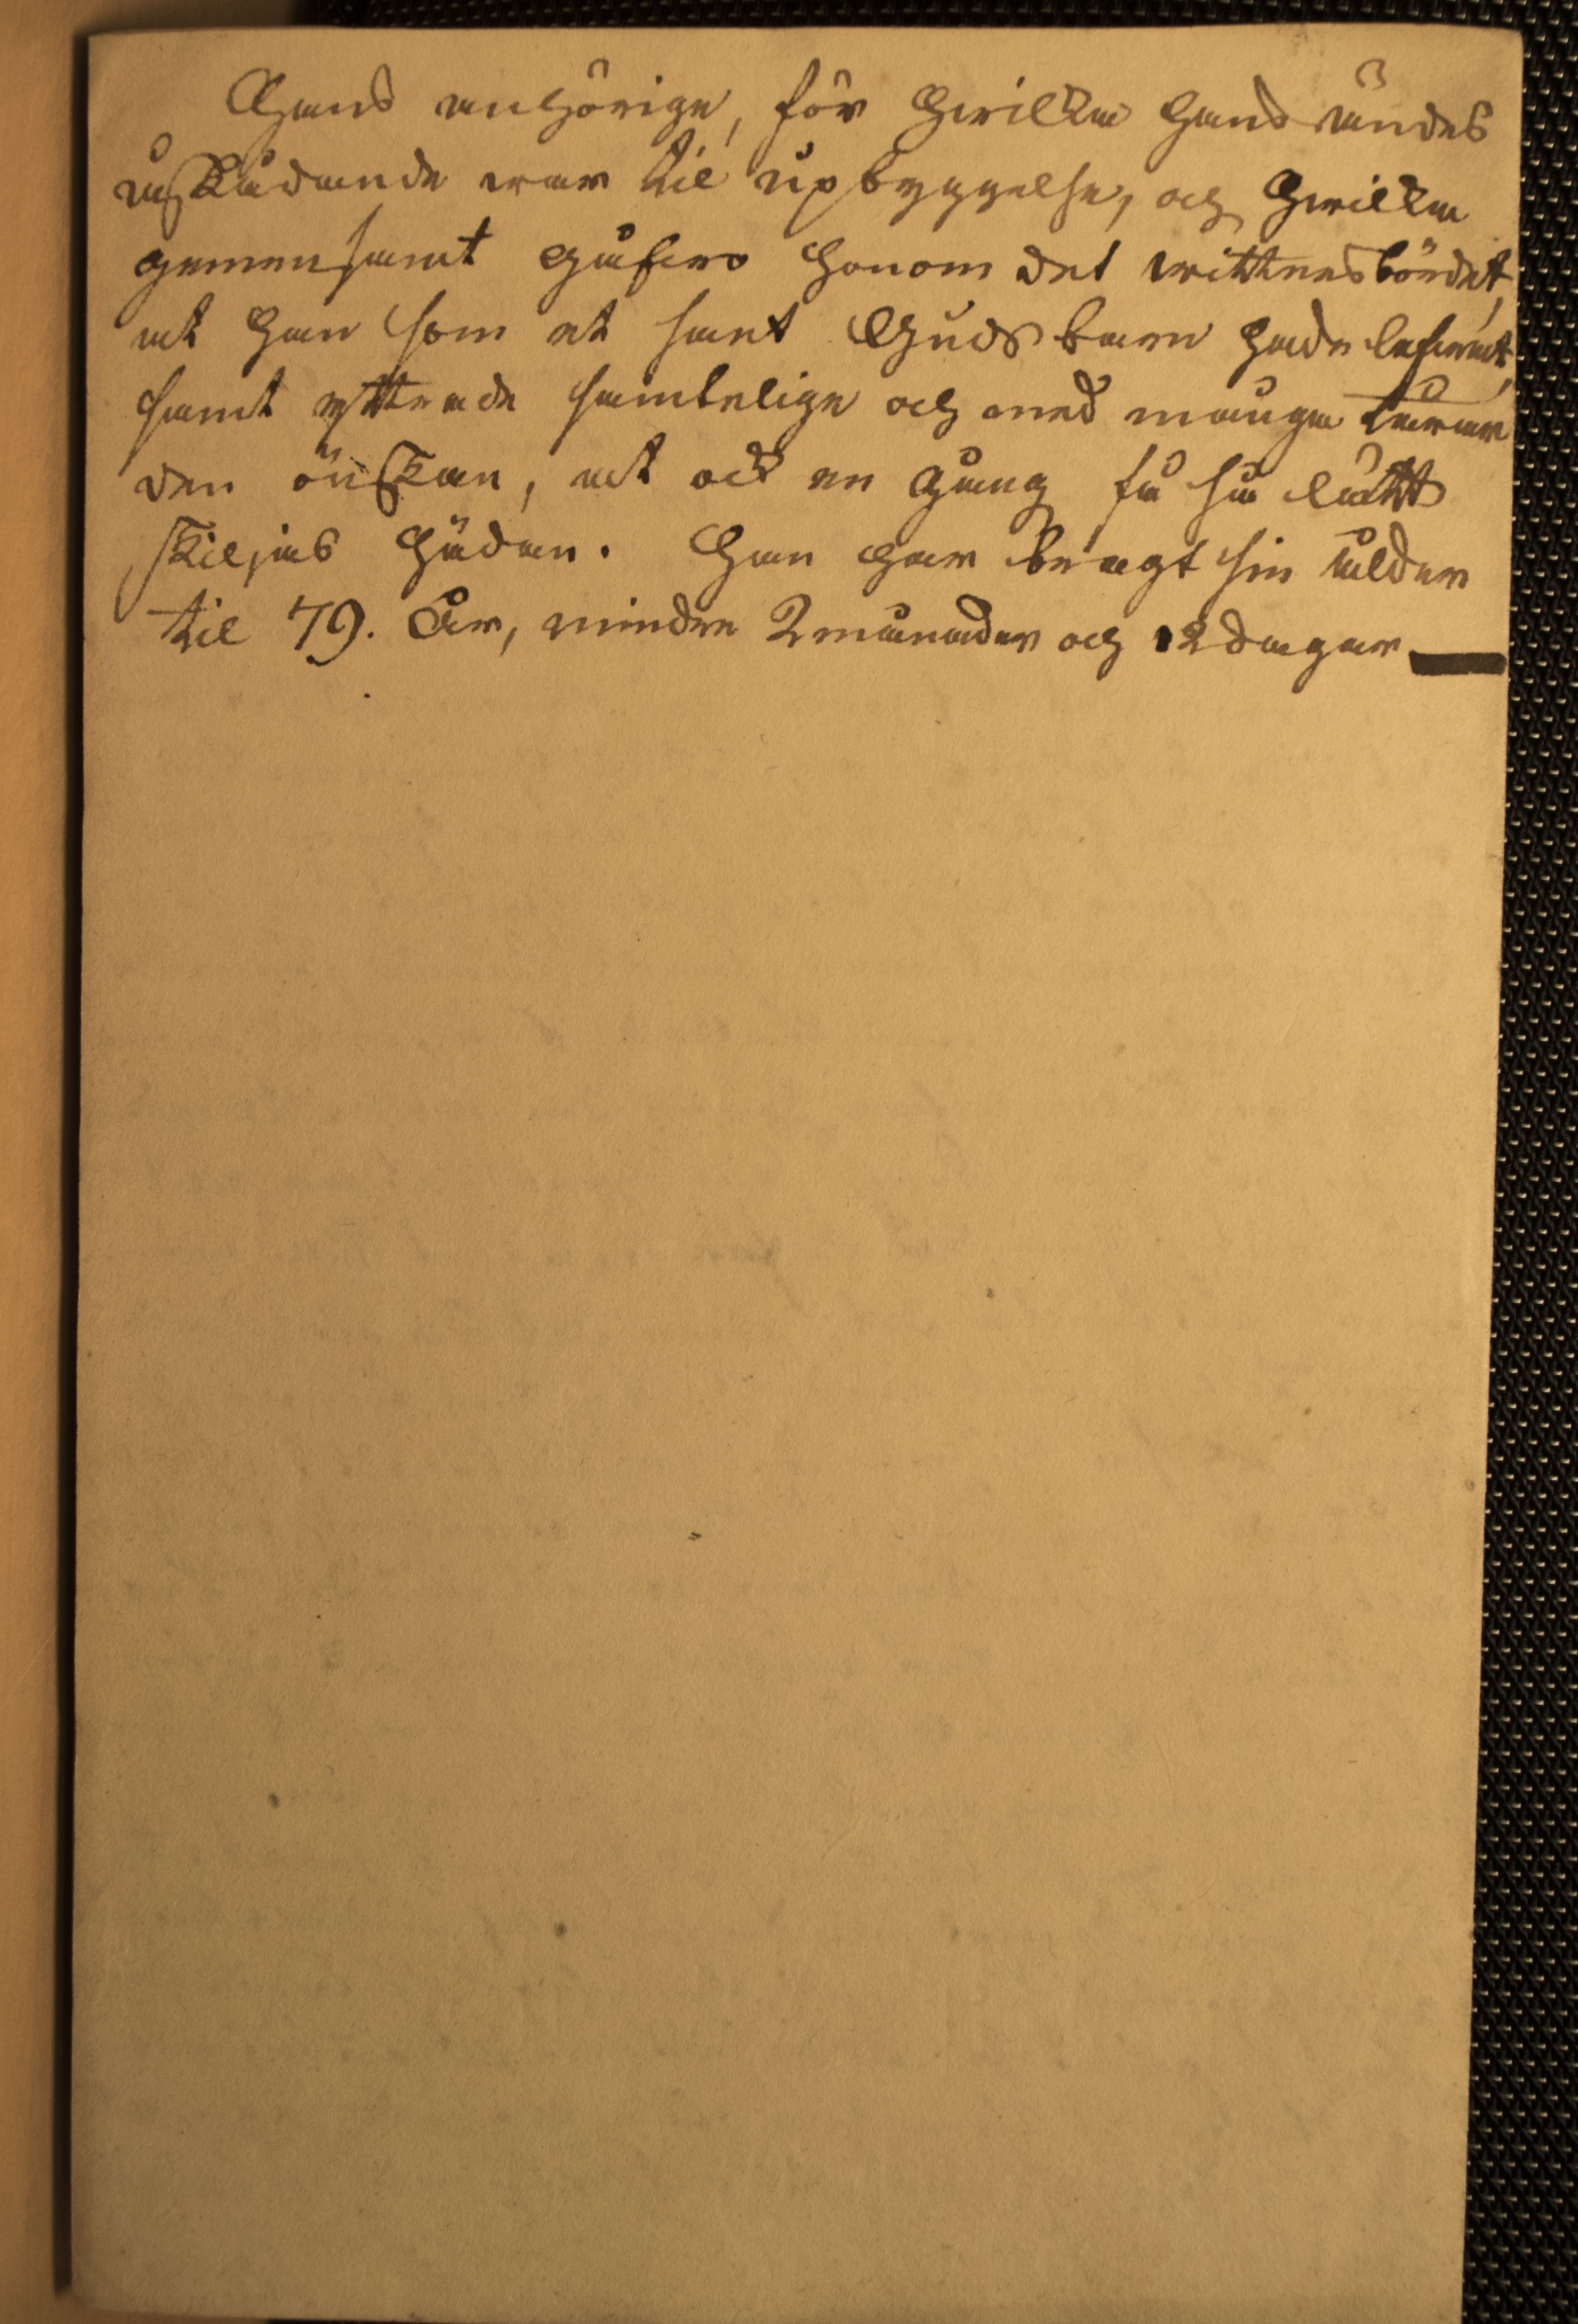 Hans anhörige, för hwilka hans ändes
åskådande war til upbyggelse, och hwilka
gemensamt gåfwo honom det wittnesbördet,
at han som et sant Guds barn hade lefwat,
samt yttrade samtelige och med många tårar
den önskan, at ock en gång få så lätt
skiljas hädan. Han har bragt sin ålder
til 79. År, mindre 2 månader och 12 dagar